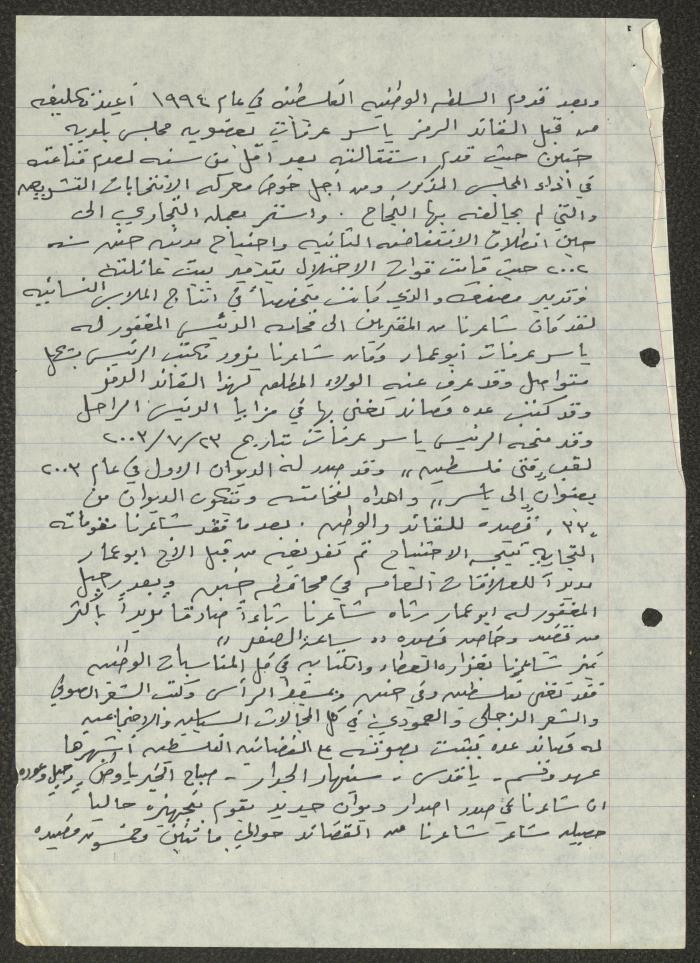 وبعد قدوم السلطه الوطنيه الفلسطينه في عام ١٩٩٤ أعيد تكليفه
من قبل القائد الرمز ياسر عرفات بعضويه مجلس بلديه
جنين حيث قدم استقالته بعد أقل من سنه لعدم قناعته
في أداء المجلس المذكور ومن أجل خوض معركه الانتخابات التشريعيه
والتي لم يحالفه بها النجاح . واستمر بعمله التجاري الى
حين انطلاق الانتفاضه الثانيه واجتياح مدينه جنين سنه
٢٠٠٢ حيث قامت قوات الاحتلال بتدمير بيت عائلته
وتدمير مصنعه والذي كانت متخصصاً في انتاج الملابس النسائيه
لقد كان شاعرنا من المقربين الى فخامه الرئيس المغفور له
ياسر عرفات أبو عمار وكان شاعرنا يزور مكتب الرئيس بشكل
متواصل وقد عرف عنه الولاء المطلق لهذا القائد الرمز
وقد كتب عده قصائد تغنى بها في مزايا الرئيس الراحل
وقد منحه الرئيس ياسر عرفات بتاريح ٢٣/٧/٢٠٠٣
لقب ,,فتى فلسطين,, وقد صدر له الديوان الاول في عام ٢٠٠٣
بعنوان ,,إلى ياسر,, واهداه لفخامته ويتكون الديوان من
,,٣٣,, قصيده للقائد والوطن . بعد ما فقد شاعرنا مقوماته
التجاريه نتيجه الاجتياح تم تفريغه من قبل الأخ ابو عمار
مديراً للعلاقات العامه في محافظه جنين وبعد رحيل
المغفور له ابو عمار رثاه شاعرنا رثاءاً صادقا مريراً بأكثر
من قصيد وخاصه قصيده ,, ساعه الصفر ,,
تميز شاعرنا بغزاره العطاء والكتابه في كل المناسبات الوطنيه
فقد تغنى بفلسطين وفي جنين وبمسقط الرأس وكتب الشعر الصوفي
والشعر الزجلي والعمودي في كل المجالات السياسيه والاجتماعيه
له قصائد عده تبثت بصوته على الفضائيه الفلسطينه أشهرها
عهد وقسم - يا قدس - سينهار الجدار - صباح الخير يا وطن - رحيل وعوده
ان شاعرنا في صدد اصدار ديوان جديد يقوم بتجهيزه حاليا
حصيله شاعر شاعرنا من القصائد حوالي مائتين وخمسون قصيده